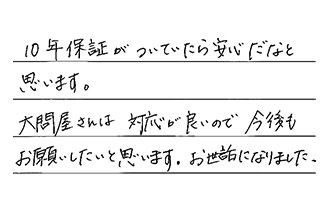 10年保証がついていたら安心だなと
思います。
大問屋さんは 対応が良いので 今後も
お願いしたいと思います。お世話になりました。